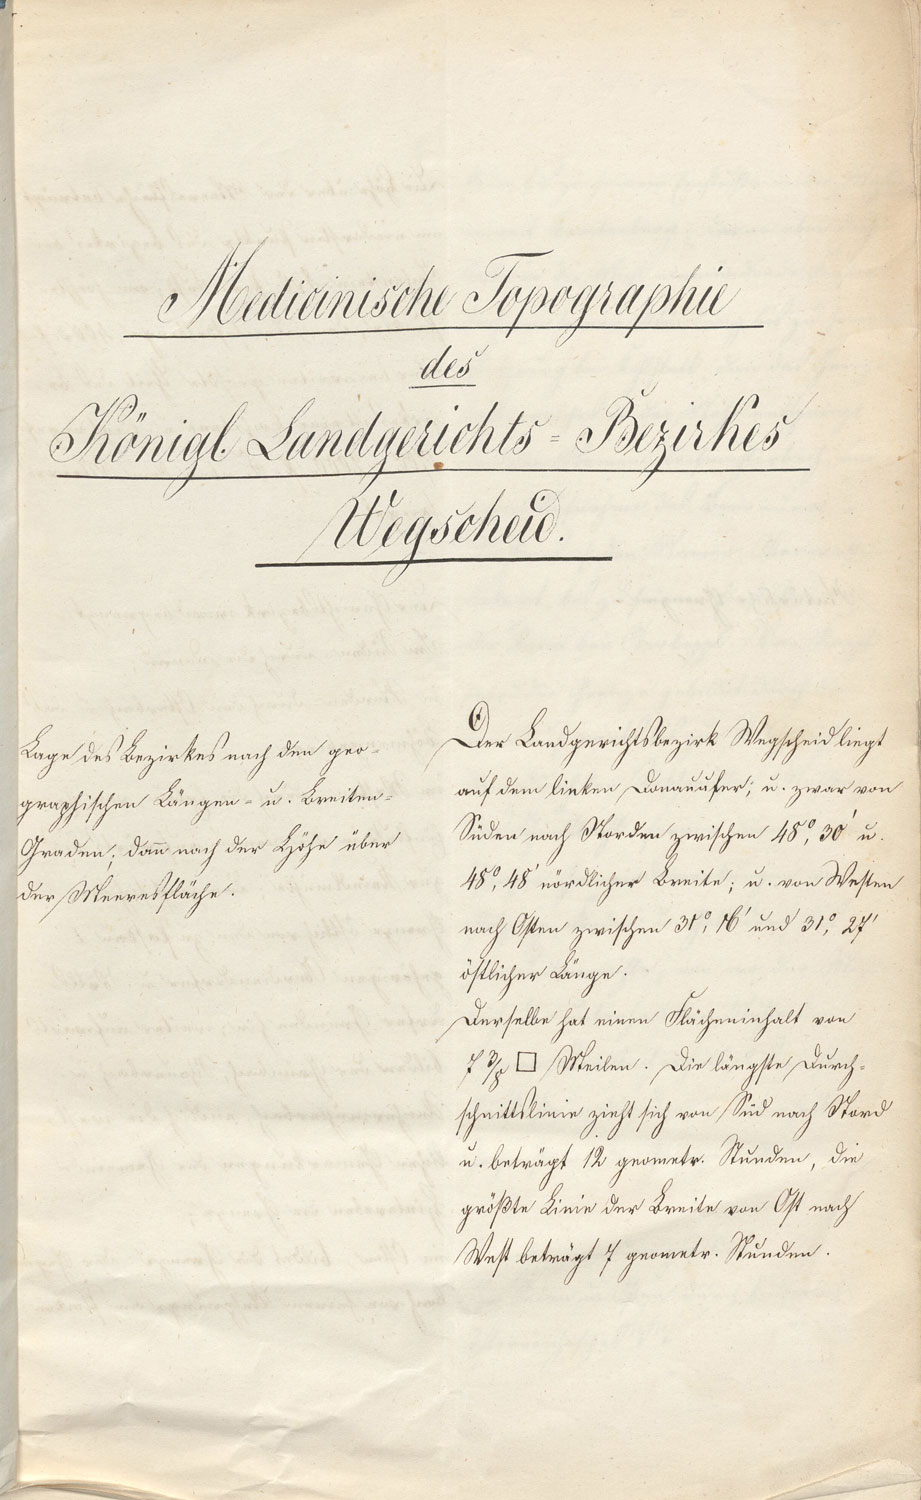 Medicinische Topographie
des
Königl. Landgerichts-Bezirkes
Wegscheid.
Lage des Bezirkes nach den geo-
graphischen Längen- u. Breiten-
Graden; dann nach der Höhe über
der Meeresfläche.
Der Landgerichtsbezirk Wegscheid liegt
auf dem linken Donauufer; u. zwar von
Süden nach Norden zwischen 48°, 30' u.
48°, 48' nördlicher Breite; u. von Westen
nach Osten zwischen 31°, 16' und 31°, 27'
östlicher Länge.
Derselbe hat einen Flächeninhalt von
7 □ Meilen. Die längste Durch-
schnittslinie zieht sich von Süd nach Nord
u. beträgt 12 geometr. Stunden, die
größte Linie der Breite von Ost nach
West beträgt 7 geometr. Stunden.